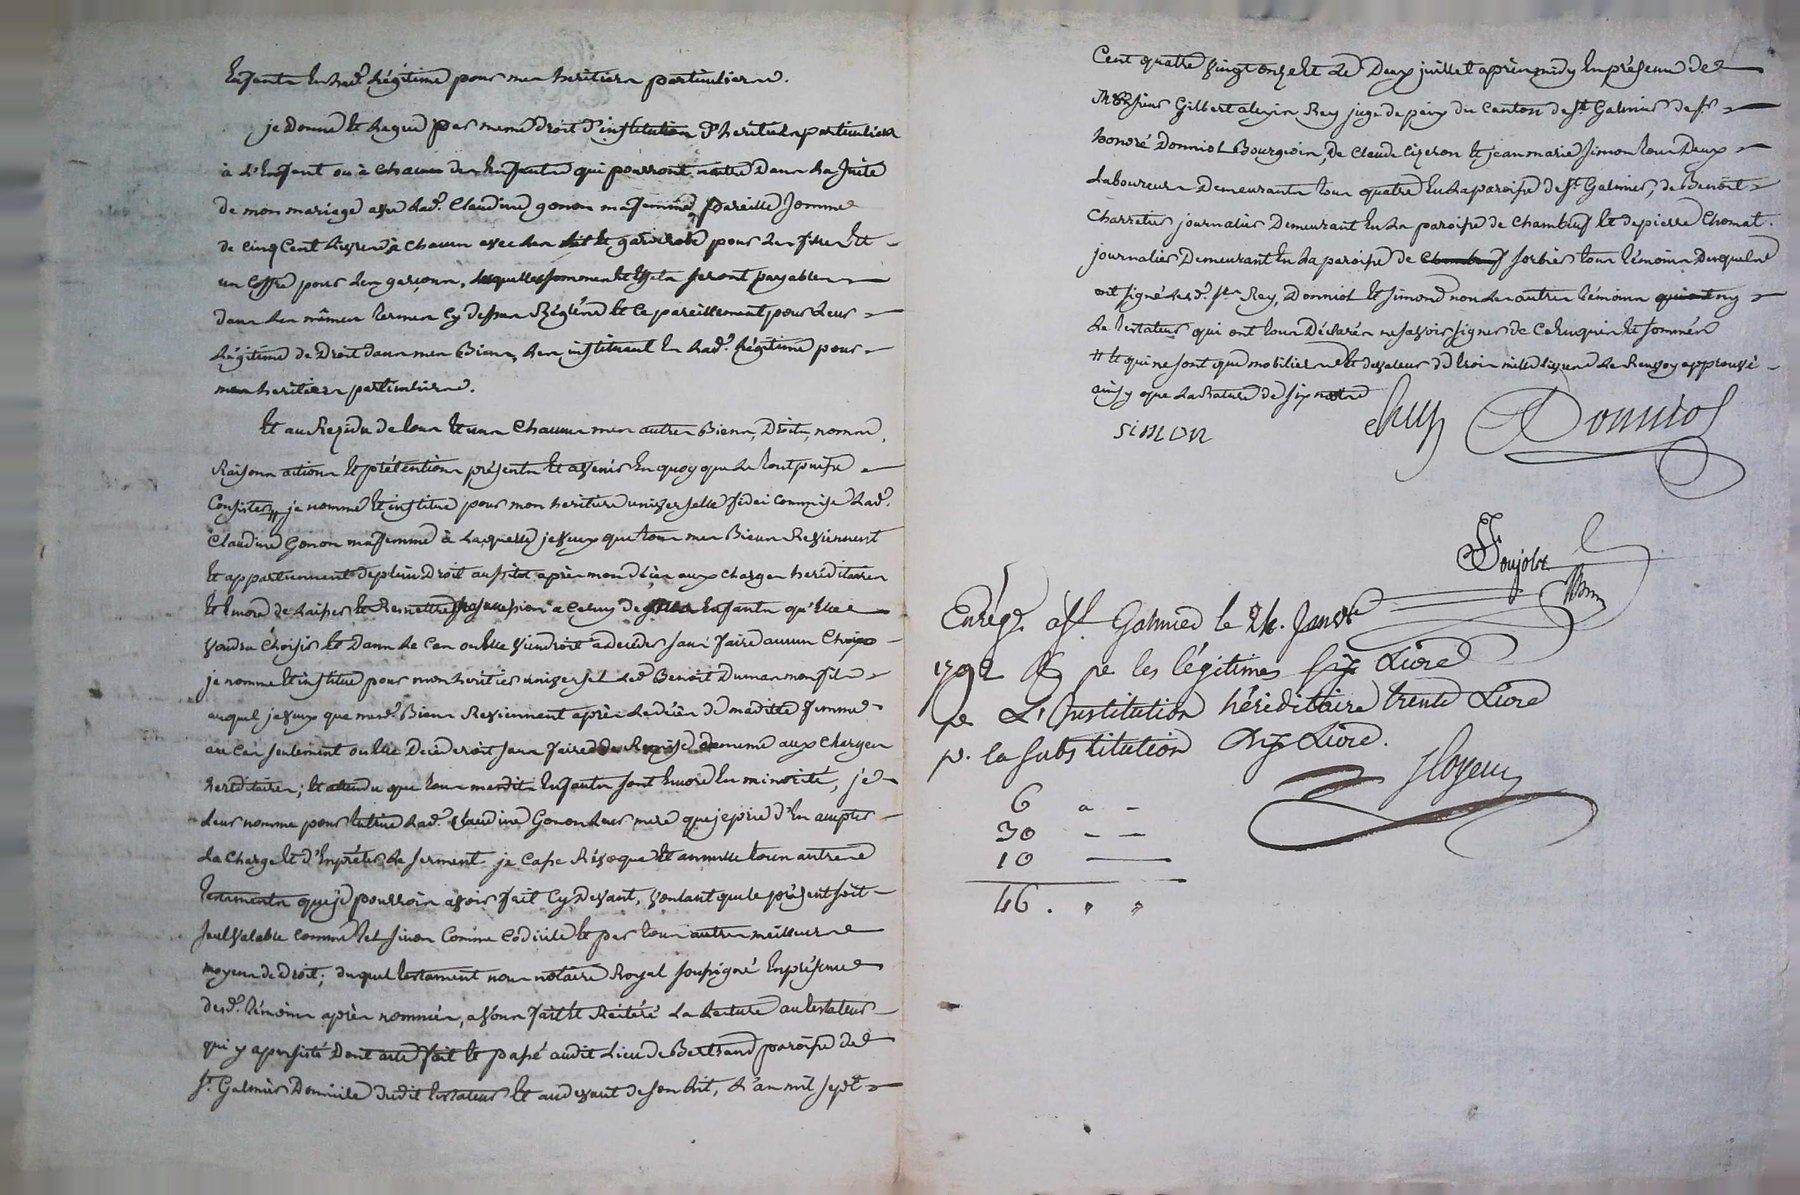 Enfants en lad.e légitime pour mes heritiers particuliers.
je Donne et Legue par meme droit d'institution d'heritiers particuliers
à L'Enfant ou à chacun des Enfants qui pourront naitre Dans La suite
de mon mariage avec Lad.e Claudine gonon ma femme, pareille somme
de cinq Cent Livres à chacun avec un lit et garderobe pour les filles Et
un coffre pour les garçons, lesquelles sommes et effets seront payables
dans les mêmes termes Cy dessus Réglés et ce pareillement pour Leur
Légitime de Droit dans mes Biens, Les instituant En Lad.e Légitime pour
mes heritiers particuliers.
Et au Residu de tous Et uns Chacuns mes autres Biens, Droits, noms,
Raisons actions Et prétentions présents Et avenir En quoy que Le tout puisse
Consister # je nomme Et institue pour mon heritiere universelle fidei commise Lad.e
Claudine Gonon ma femme à Laquelle je veux que tous mes Biens Reviennent
Et appartiennent de plein Droit aussitot après mon décès aux charges héréditaires
Et Encore de Laisser Et Remettre ma succession a Celuy de Enfants qu'Elle
voudra Choisir Et Dans Le Cas ou Elle viendroit a deceder sans faire aucun Choix
je nomme Et institue pour mon heritier universel Led. Benoit Dumas mon fils
auquel je veux que mesd. Biens Reviennent après Le décès de maditte femme
au Cas seulement ou Elle Decederoit sans faire de Remise de meme aux Charges
héréditaires; Et attendu que tous mesdits Enfants sont Encore En minorité, je
Leur nomme pour tutrice Lad.e Claudine Gonon Leur mere que je prie d'En accepter
La Charge Et d'En prêter Le serment je Casse Révoque Et annulle tous autres
testaments que je pourrois avoir fait Cy Devant, voulant que le présent soit
seul valable comme tel sinon Comme Codicile Et par tous autres meilleurs
moyens de Droit; duquel testament nous notaire Royal soussigné En présence
desd. témoins après nommés, avons fait Et Réitéré La Lecture au testateur
qui y a persisté Dont acte fait Et passé audit Lieu de Bertrand paroisse de
St. Galmier Domicile dudit testateur Et au devant de son Lit, L'an mil sept
Cent quatre vingt onze Et Le Deux juillet après midy En présence de
Monsieur Gilbert alexis Rey juge de paix du Canton de St. Galmier de Sr.
honoré Donniol Bourgeois, De Claude Cizeron Et jean marie Simon tous Deux
Laboureurs Demeurants tous quatre En La paroisse de St. Galmier, de Benoit
Charretier journalier Demeurant En La paroisse de Chambeuf Et de pierre Chomat
journalier Demeurant En La paroisse de Chambeuf sorbier tous témoins Desquels
ont signé Lesd. Srs. Rey, Donniol Et Simond non Les autres témoins ny
Le testateur qui ont tous Déclarés ne savoir signer de Ce Enquis Et sommés
# Et qui ne sont que mobiliers et de valeur de trois mille Livres Le Renvoy approuvé
ainsy que La Rature de six mots
simon Rey Donniol
Enrég. à St. Galmier le 24. Janv.
1792 Rç. pr les légitimes six Livres
pr L'Institution héréditaire trente Livres
pr. la substitution dix Livres.
6 " -
30 - -
10 -
46. " "